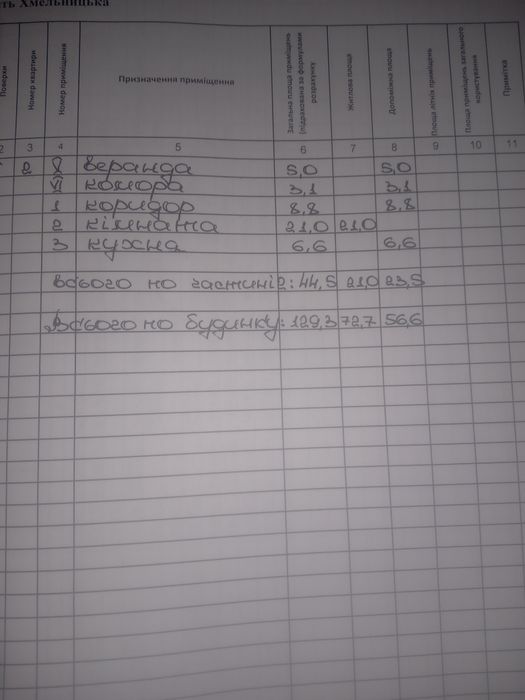 ть Хмельницька
Поверхи
Номер квартири
Номер приміщення
Призначення приміщення
Загальна площа приміщень (підрахована за формулами розрахунку
Житлова площа
Допоміжна площа
Площа літніх приміщень
Площа приміщень загального користування
Примітка
2 3 4 5 6 7 8 9 10 11
2 V веранда 5,0 5,0
VI комора 3,1 3,1
1 коридор 8,8 8,8
2 кімната 21,0 21,0
3 кухня 6,6 6,6
Всього по частині 2: 44,5 21,0 23,5
Всього по будинку: 129,3 72,7 56,6